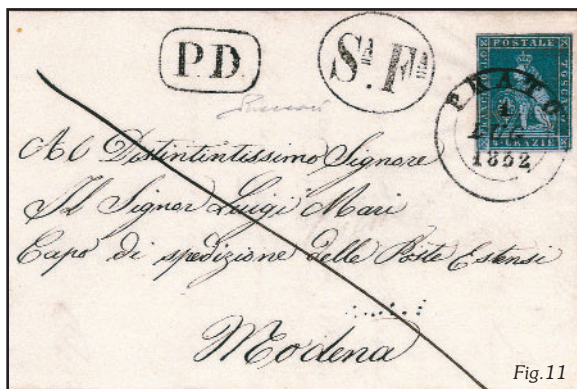 P.D.
S.A F.IIA
FRANCOBOLLO
POSTALE
TOSCANO
4 CRAZIE
PRATO
1
LUG
1852
Al Distintintissimo Signore
Il Signor Luigi Mari
Capo di spedizione delle Poste Estensi
Modena
Fig.11